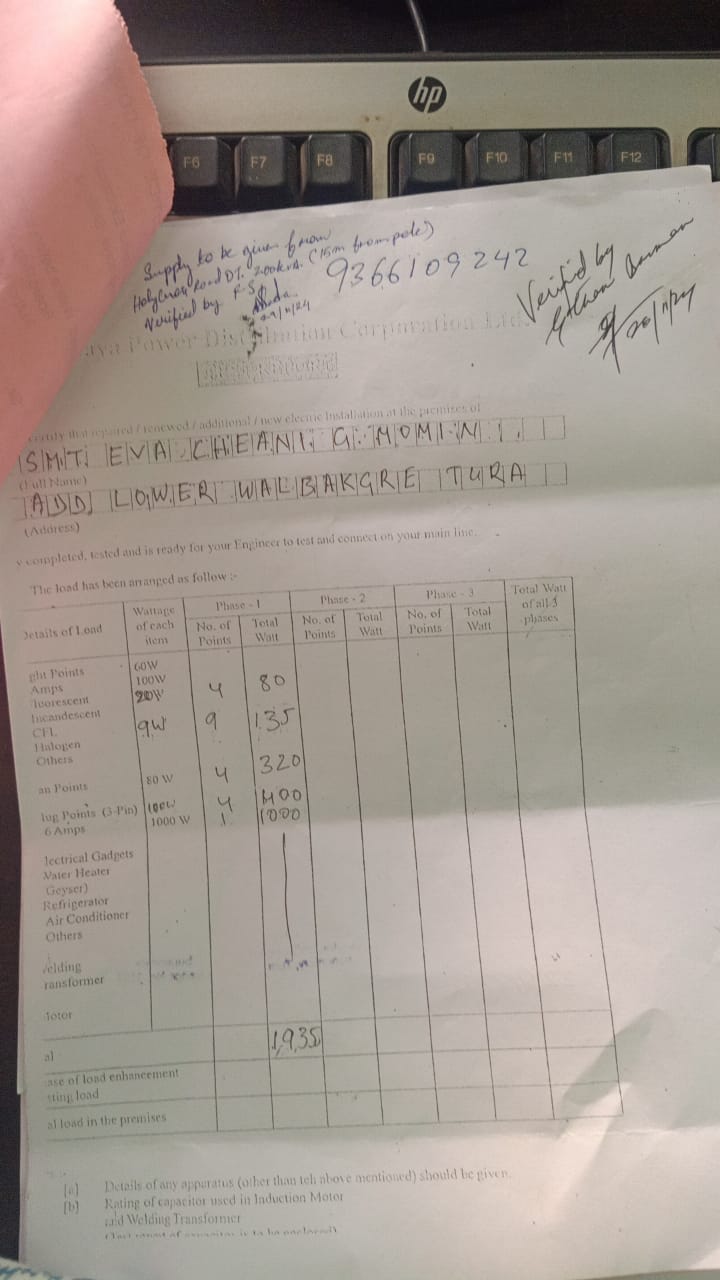 hp
F6 F7 F8 F9 F10 F11 F12
Supply to be given from
Holycross Road DT. 200KVA. (15m from pole)
Verified by
29/11/24
9366109242
Verified by
aya Power Distribution Corporation Ltd.
certify that repaired / renewed / additional / new electric Installation at the premises of
SMT. EVA CHEANI G. MOMIN.
(Full Name)
ADD LOWER WALBAKGRE TURA
(Address)
y completed, tested and is ready for your Engineer to test and connect on your main line.
The load has been arranged as follow :-
Details of Load Wattage of each item Phase - 1 Phase - 2 Phase - 3 Total Watt of all 3 phases
No. of Points Total Watt No. of Points Total Watt No. of Points Total Watt
ght Points 60W
Amps 100W
luorescent 20W 4 80
Incandescent
CFL 9W 9 135
Halogen
Others
an Points 80 W 4 320
lug Points (3-Pin) 100W 4 400
6 Amps 1000 W 1 1000
lectrical Gadgets
Water Heater
Geyser)
Refrigerator
Air Conditioner
Others
elding
ransformer
otor
al 1,935
ase of load enhancement
sting load
al load in the premises
[a] Details of any apparatus (other than teh above mentioned) should be given.
[b] Rating of capacitor used in Induction Motor
and Welding Transformer